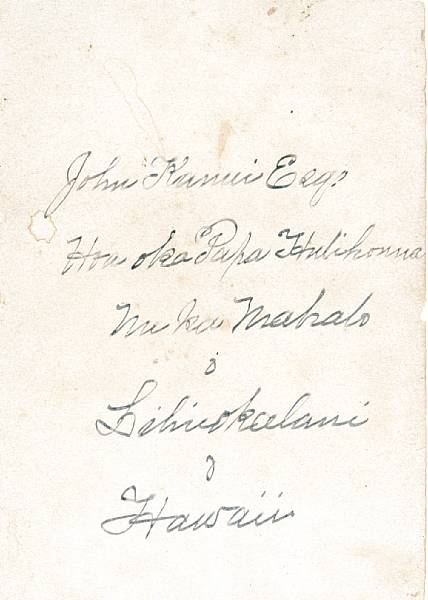 John Kamui Esq.
Hon oka Papa Hulihonua
Me ka Mahalo
o
Liliuokalani
o
Hawaii